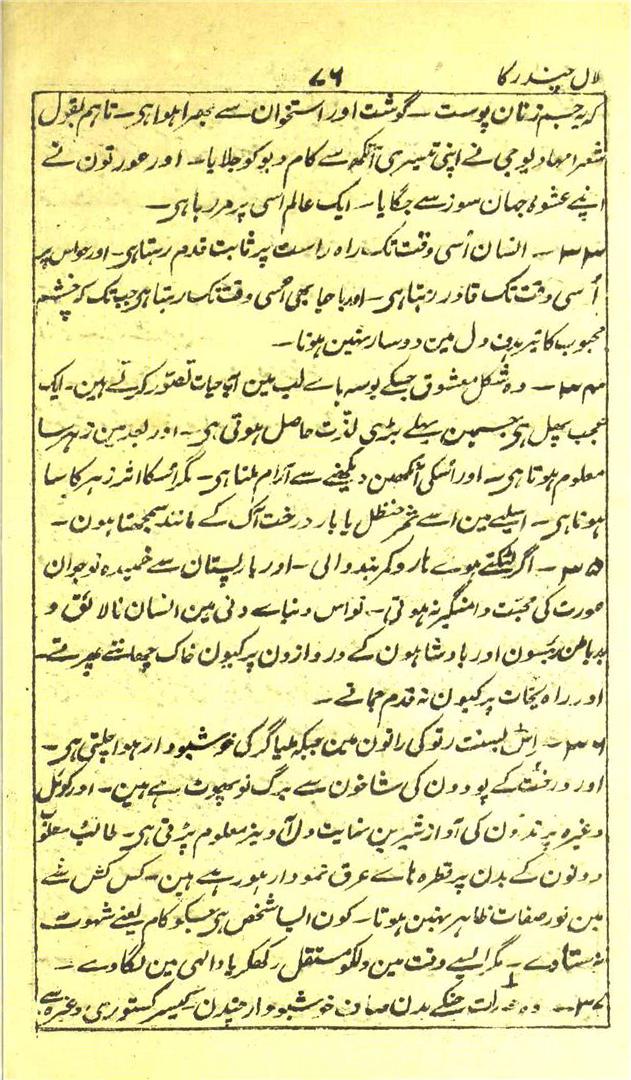 لال چندر کا ۷۶
کہ یہ جسم زنان پوست ۔ گوشت اور استخوان سے بھرا ہوا ہی ۔ تاہم بقول
شعرا مہادیوجی نے اپنی تیسری آنکھ سے کام دیو کو جلایا ۔ اور عورتون نے
اپنے عشوۂ جہان سوز سے جگایا ۔ ایک عالم اسی پر مر رہا ہی ۔
۳۳ ۔ انسان اُسی وقت تک راہ راست پر ثابت قدم رہتا ہی ۔ اور حواس پر
اُسی وقت تک قادر رہتا ہی ۔ اور باحیا بھی اُسی وقت تک رہتا ہی جب تک کہ چشم
محبوب کا تیر ہدف دل مین دوسار نہین ہوتا ۔
۳۴ ۔ وہ شکل معشوق جسکے بوسہ ہاے لب مین آبحیات تصوّر کرتے ہین ۔ ایک
عجب پھل ہی جسمین پہلے بڑی لذّت حاصل ہوتی ہی ۔ اور بعد مین زہر سا
معلوم ہوتا ہی ۔ اور اسکی آنکھین دیکھنے سے آرام ملتا ہی ۔ مگر اسکا اثر زہر کا سا
ہوتا ہی ۔ اسلیے مین اسے ثمر حنظل یا بار درخت آک کے مانند سمجھتا ہون ۔
۳۵ ۔ اگر لٹکتے ہوے ہار و کمربند والی ۔ اور بار پستان سے خمیدہ نوجوان
عورت کی محبّت دامنگیر نہ ہوتی ۔ تو اس دنیاے دنی مین انسان نالائق و
بدباطن رئیسون اور بادشاہون کے دروازون پر کیون خاک چھانتے پھرتے ۔
اور راہ نجات پر کیون نہ قدم جماتے ۔
۳۶ ۔ اس بسنت رتو کی راتون مین جبکہ ملیاگر کی خوشبودار ہوا چلتی ہی ۔
اور درخت کے پودون کی شاخون سے برگ نو پھوٹ رہے ہین ۔ اور کوئل
وغیرہ پرندون کی آواز شیرین نہایت دل آویز معلوم پڑتی ہی ۔ طالب مطلوب
دونون کے بدن پر قطرہ ہاے عرق نمودار ہو رہے ہین ۔ کس کس شے
مین نور صفات ظاہر نہین ہوتا ۔ کون ایسا شخص ہی جسکو کام یعنے شہوت
نہ ستاوے ۔ مگر ایسے وقت مین دلکو مستقل رکھکر یاد الہی مین لگاوے ۔
۳۷ ۔ وہ عورات جنکے بدن صاف خوشبودار چندن ۔ کیسر کستوری وغیرہ سے